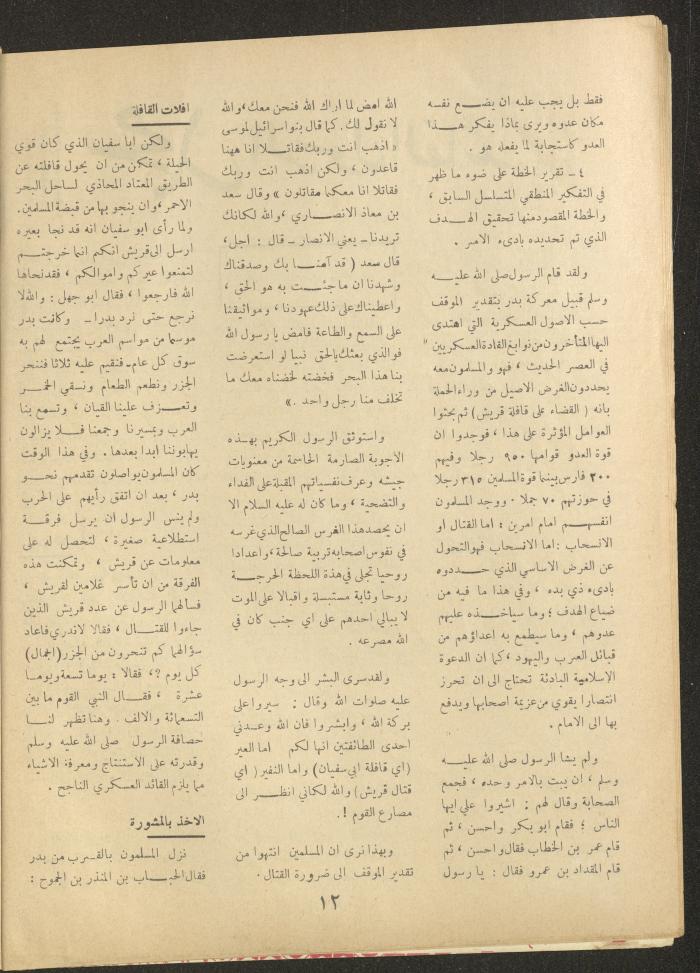 فقط بل يجب عليه ان يضع نفسه
مكان عدوه ويرى بماذا يفكر هذا
العدو كاستجابة لما يفعله هو .
٤ - تقرير الخطة على ضوء ما ظهر
في التفكير المنطقي المتسلسل السابق ،
والخطة المقصود منها تحقيق الهدف
الذي تم تحديده بادىء الامر .
ولقد قام الرسول صلى الله عليه
وسلم قبيل معركة بدر بتقدير الموقف
حسب الاصول العسكرية التي اهتدى
اليها المتأخرون من نوابغ القادة العسكريين
في العصر الحديث ، فهو والمسلمون معه
يحددون الغرض الاصيل من وراء الحملة
بانه ( القضاء على قافلة قريش ) ثم بحثوا
العوامل المؤثرة على هذا ، فوجدوا ان
قوة العدو قوامها ٩٥٠ رجلا وفيهم
٢٠٠ فارس بينما قوة المسلمين ٣١٥ رجلا
في حوزتهم ٧٠ جملا . ووجد المسلمون
انفسهم امام امرين : اما القتال او
الانسحاب : اما الانسحاب فهو التحول
عن الغرض الاساسي الذي حددوه
بادىء ذي بدء ، وفي هذا ما فيه من
ضياع الهدف ؛ وما سيأخذه عليهم
عدوهم ، وما سيطمع به اعداؤهم من
قبائل العرب واليهود ، كما ان الدعوة
الإسلامية البادئة تحتاج الى ان تحرز
انتصارا يقوي من عزيمة اصحابها ويدفع
بها الى الامام .
ولم يشا الرسول صلى الله عليه
وسلم ، ان يبت بالامر وحده ، فجمع
الصحابة وقال لهم : اشيروا علي ايها
الناس ؛ فقام ابو بكر واحسن ، ثم
قام عمر بن الخطاب فقال واحسن ، ثم
قام المقداد بن عمرو فقال : يا رسول
الله امض لما اراك الله فنحن معك ، والله
لا نقول لك كما قال بنو اسرائيل لموسى
« اذهب انت وربك فقاتلا انا ههنا
قاعدون ، ولكن اذهب انت وربك
فقاتلا انا معكما مقاتلون » وقال سعد
بن معاذ الانصاري ، والله لكانك
تريدنا - يعني الانصار - قال : اجل ،
قال سعد ( قد آمنا بك وصدقناك
وشهدنا ان ما جئت به هو الحق ،
واعطيناك على ذلك عهودنا ، ومواثيقنا
على السمع والطاعة فامض يا رسول الله
فوالذي بعثك بالحق نبيا لو استعرضت
بنا هذا البحر فخضته لخضناه معك ما
تخلف منا رجل واحد . »
واستوثق الرسول الكريم بهذه
الأجوبة الصارمة الحاسمة من معنويات
جيشه وعرف نفسياتهم المقبلة على الفداء
والتضحية ، وما كان له عليه السلام الا
ان يحصد هذا الغرس الصالح الذي غرسه
في نفوس اصحابه تربية صالحة ، واعدادا
روحيا تجلى في هذة اللحظة الحرجة
روحا وثابة مستبسلة واقبالا على الموت
لا يبالي احدهم على اي جنب كان في
الله مصرعه .
ولقد سرى البشر الى وجه الرسول
عليه صلوات الله وقال : سيروا على
بركة الله ، وابشروا فان الله وعدني
احدى الطائفتين انها لكم اما العير
( اي قافلة ابي سفيان ) واما النفير ( اي
قتال قريش ) والله لكاني انظر الى
مصارع القوم ! .
وبهذا نرى ان المسلمين انتهوا من
تقدير الموقف الى ضرورة القتال .
افلات القافلة
ولكن ابا سفيان الذي كان قوي
الحيلة ، تمكن من ان يحول قافلته عن
الطريق المعتاد المحاذي لساحل البحر
الاحمر ، وان ينجو بها من قبضة المسلمين .
ولما رأى ابو سفيان انه قد نجا بعيره
ارسل الى قريش انكم انما خرجتم
لتمنعوا عيركم واموالكم ، فقد نجاها
الله فارجعوا ، فقال ابو جهل : والله لا
نرجع حتى نرد بدرا - وكانت بدر
موسما من مواسم العرب يجتمع لهم به
سوق كل عام - فنقيم عليه ثلاثا فننحر
الجزر ونطعم الطعام ونسقي الخمر
وتعزف علينا القيان ، وتسمع بنا
العرب وبمسيرنا وجمعنا فلا يزالون
يهابوننا ابدا بعدها . وفي هذا الوقت
كان المسلمون يواصلون تقدمهم نحو
بدر ، بعد ان اتفق رأيهم على الحرب
ولم ينس الرسول ان يرسل فرقة
استطلاعية صغيرة ، لتحصل له على
معلومات عن قريش ، وتمكنت هذه
الفرقة من ان تأسر غلامين لقريش ،
فسألهما الرسول عن عدد قريش الذين
جاءوا للقتال ، فقالا لا ندري فاعاد
سؤالهما كم تنحرون من الجزر (الجمال)
كل يوم ؟، فقالا : يوما تسعة ويوما
عشرة ، فقال النبي القوم ما بين
التسعمائة والالف . وهنا تظهر لنا
حصافة الرسول صلى الله عليه وسلم
وقدرته على الاستنتاج ومعرفة الاشياء
مما يلزم القائد العسكري الناجح .
الاخذ بالمشورة
نزل المسلمون بالقرب من بدر
فقال الحباب بن المنذر بن الجموح :
١٢